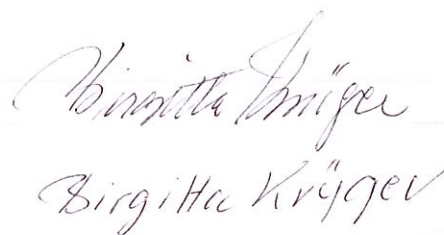 Birgitta Krüger
Birgitta Krüger